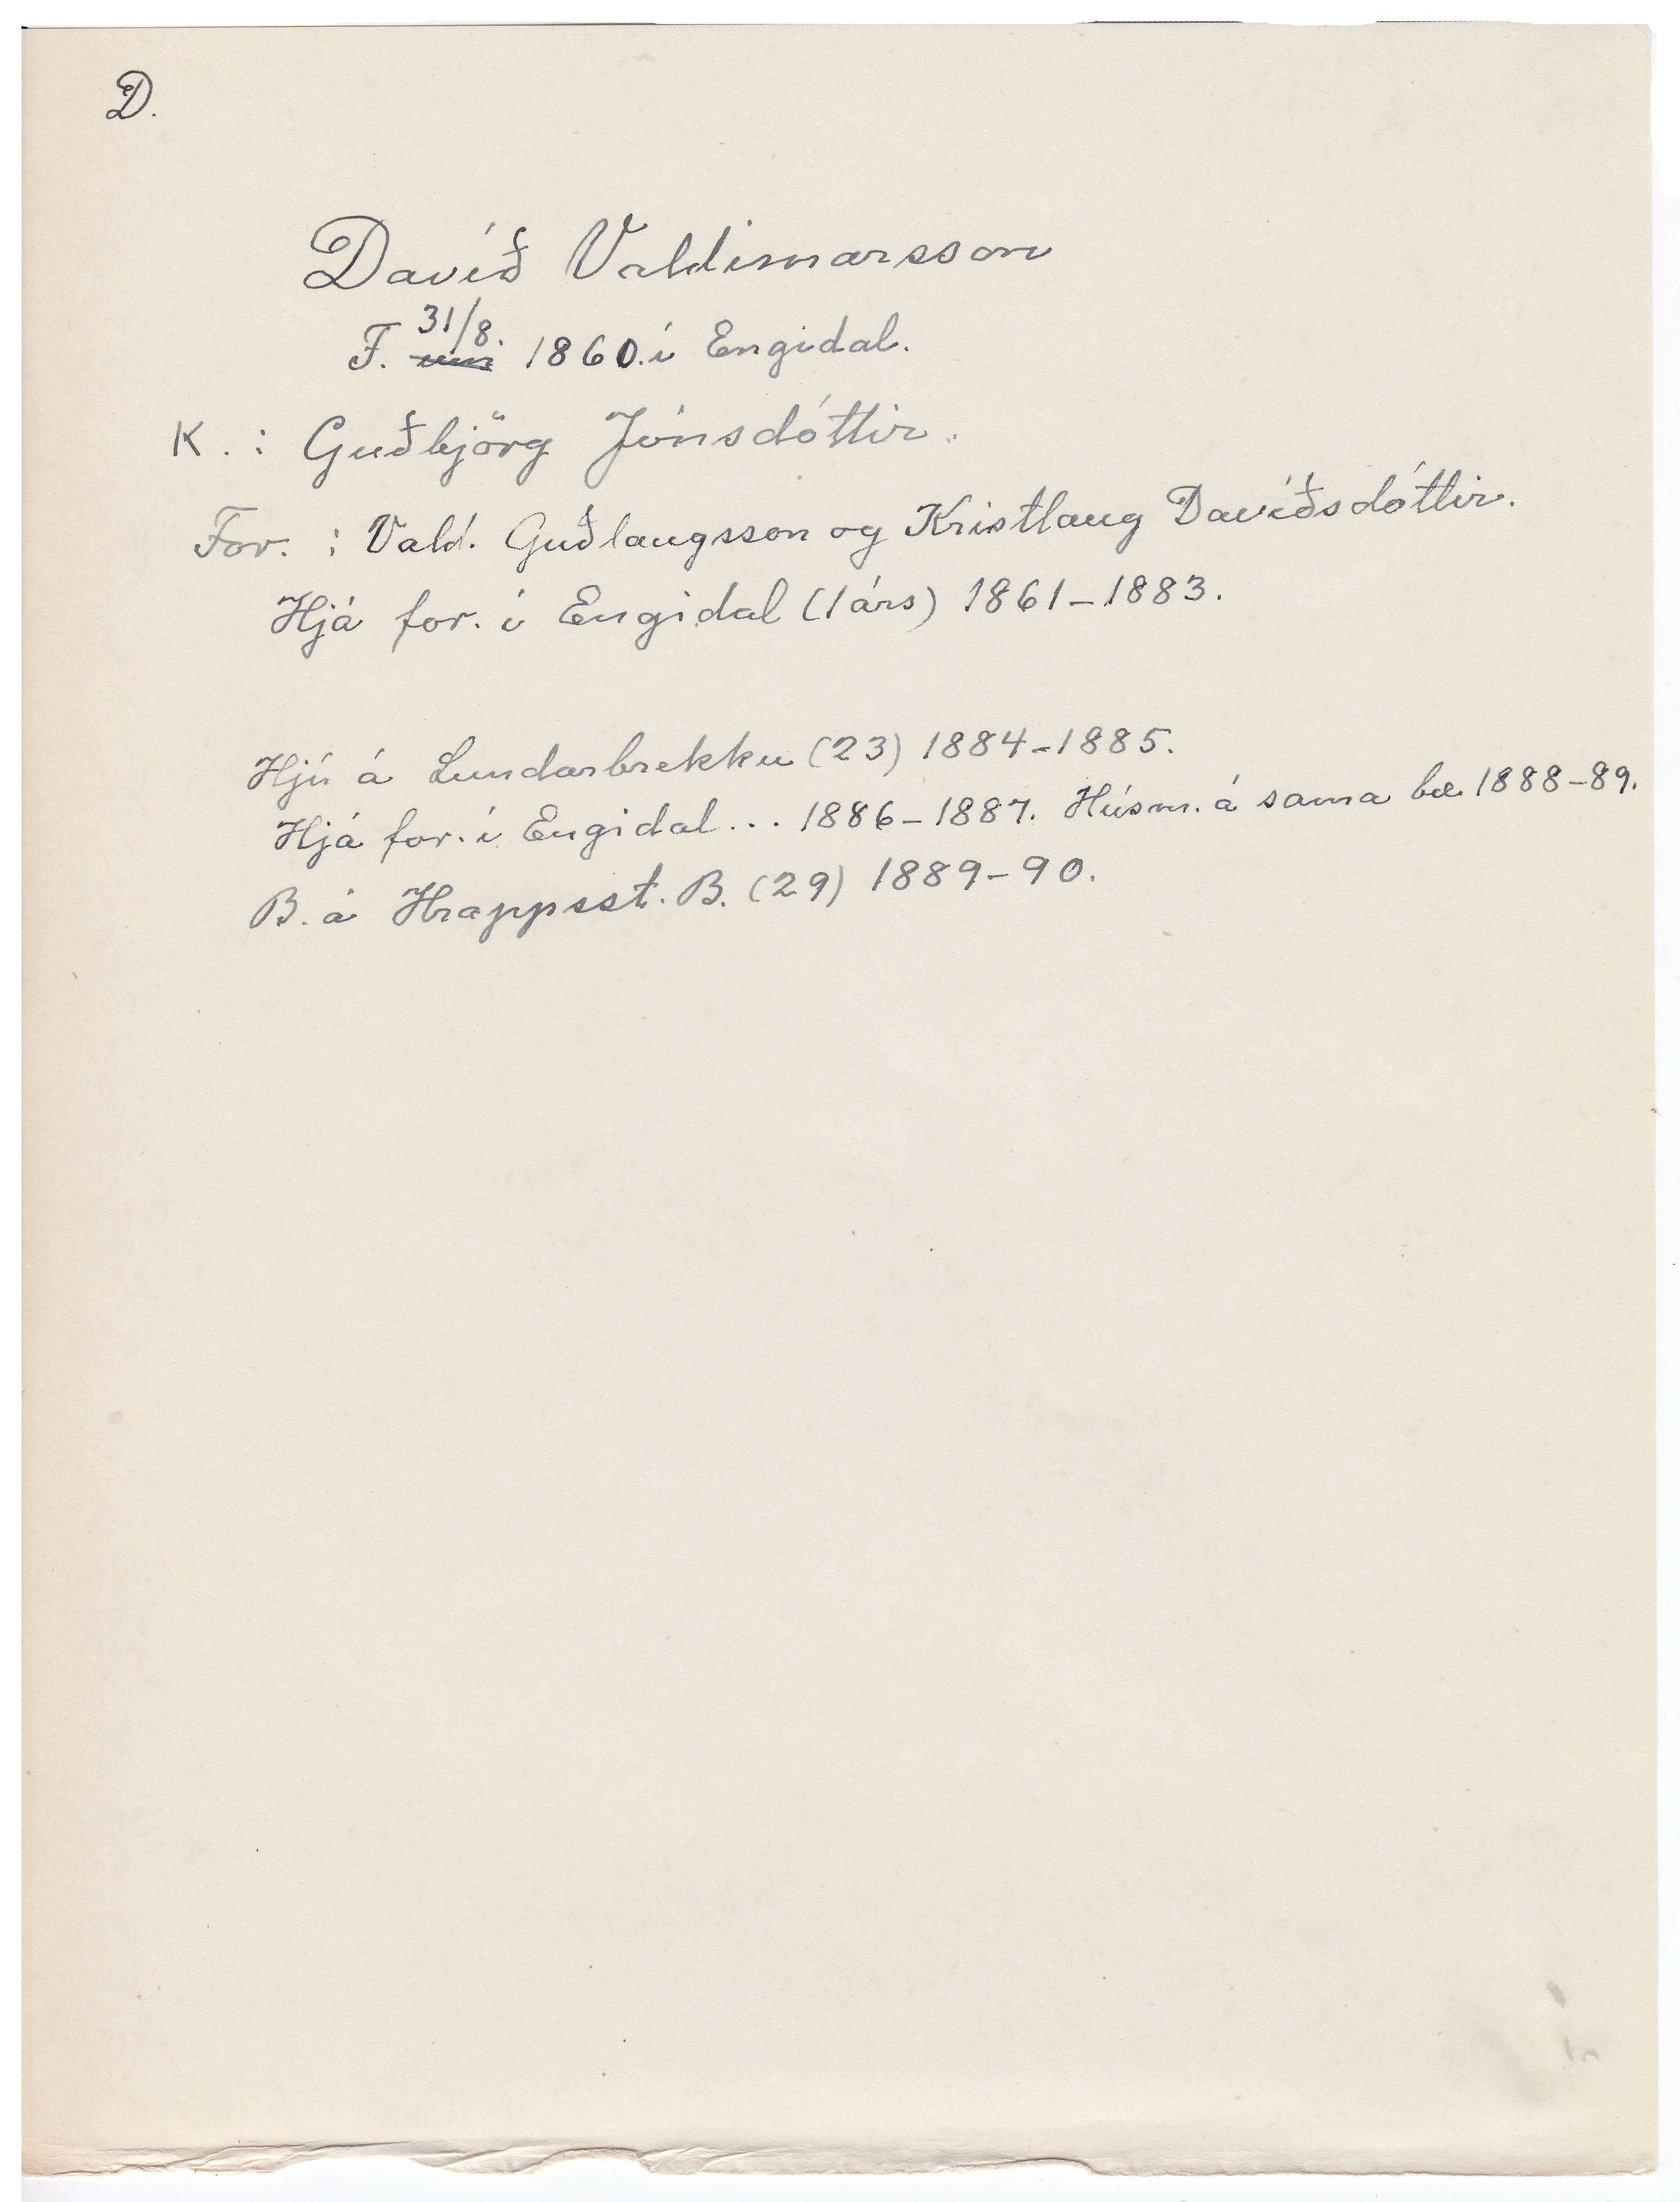 D.
Davíð Valdimarsson
F. 31/8. um 1860. í Engidal.
K. : Guðbjörg Jónsdóttir.
For. : Vald. Guðlaugsson og Kristlaug Davíðsdóttir.
Hjá for. í Engidal (1 árs) 1861-1883.
Hjú á Lundarbrekku (23) 1884-1885.
Hjá for. í Engidal... 1886-1887. Húsm. á sama bæ 1888-89.
B. á Hrappsst. B. (29) 1889-90.